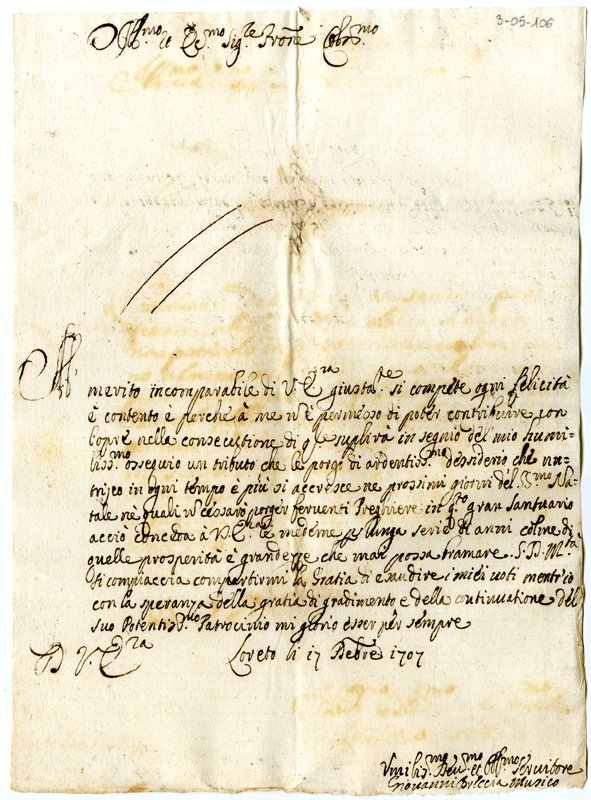 3-05-106
Ill.mo et Ecc.mo Sig.re Prone Colmo
Al
merito incomparabile di V. E.ra giusta.te si compete ogni felicità
è contento è perche à me n'è permesso di poter contribuire con
l'opre nella consecutione di q.le suplirà in segnio del mio humi-
liss.mo ossequio un tributo che le porgo di ardentiss.mo dessiderio che nu-
trisco in ogni tempo e più si accresce ne prossimi giorni del SS.mo Na-
tale nè quali ñ cessarò porger ferventi Preghiere in q.to gran Santuario
acciò conceda à V. E. le medeme p lunga serie di anni colme di
quelle prosperità è grandezze che mai possa bramare. S. D. M.tà
si compiaccia compartirmi la Gratia di exaudire i miei voti mentr'io
con la speranza della gratia di gradimento e della continuatione del
suo Potentiss.mo Patrocinio mi glorio esser per sempre
D V. E.ra
Loreto li 17 Xbre 1707
Umiliss.mo Dev.mo et Obl.mo Servitore
Giovanni Breccia Musico